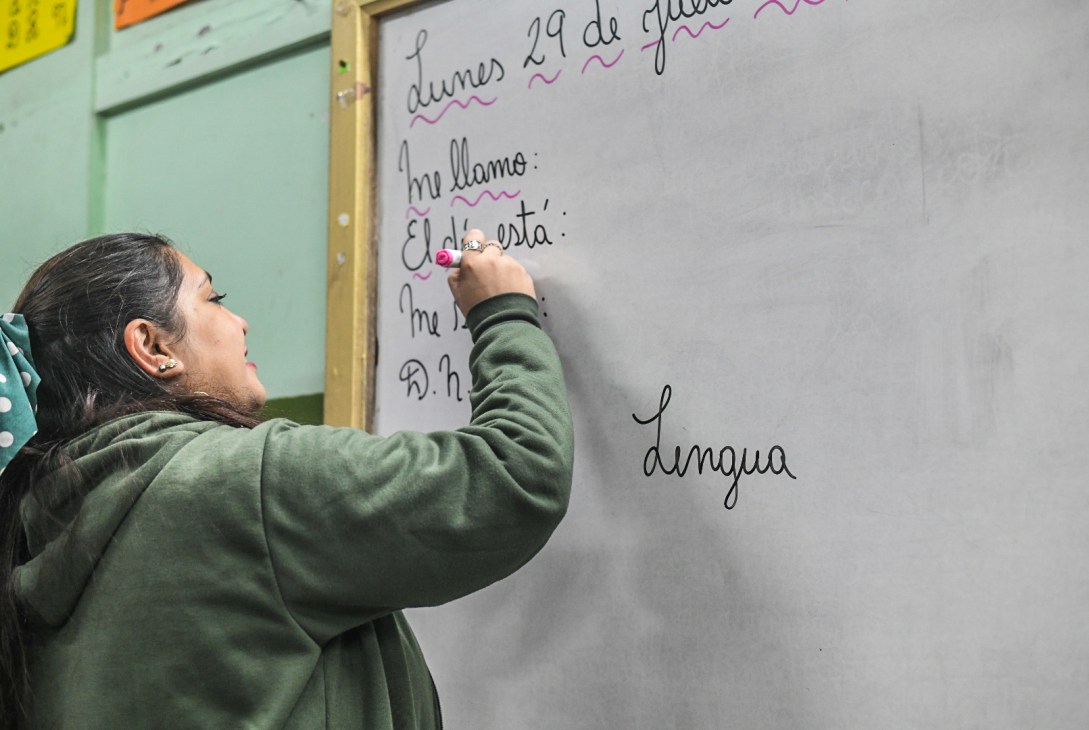 Lunes 29 de
Me llamo:
El día está:
Me
D.N.
Lengua